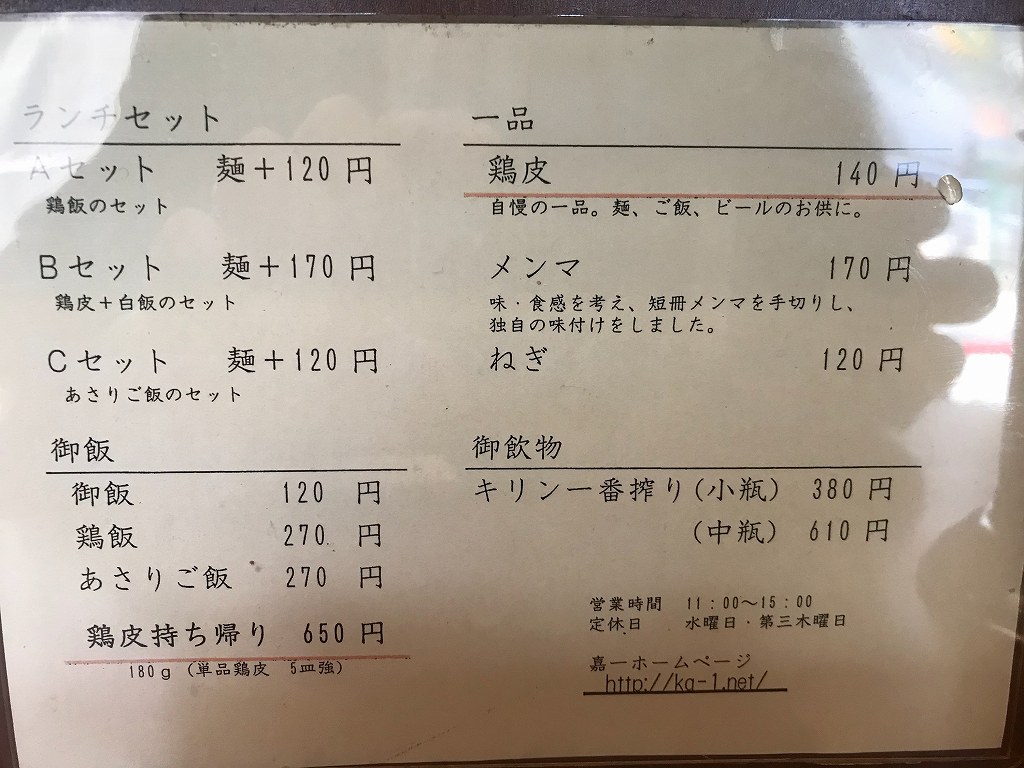 ランチセット
Aセット 麺+120円
鶏飯のセット
Bセット 麺+170円
鶏皮+白飯のセット
Cセット 麺+120円
あさりご飯のセット
御飯
御飯 120 円
鶏飯 270 円
あさりご飯 270 円
鶏皮持ち帰り 650 円
180g(単品鶏皮 5皿強)
一品
鶏皮 140 円
自慢の一品。麺、ご飯、ビールのお供に。
メンマ 170 円
味・食感を考え、短冊メンマを手切りし、
独自の味付けをしました。
ねぎ 120 円
御飲物
キリン一番搾り(小瓶) 380 円
(中瓶) 610 円
営業時間 11:00~15:00
定休日 水曜日・第三木曜日
嘉一ホームページ
http://ka-1.net/